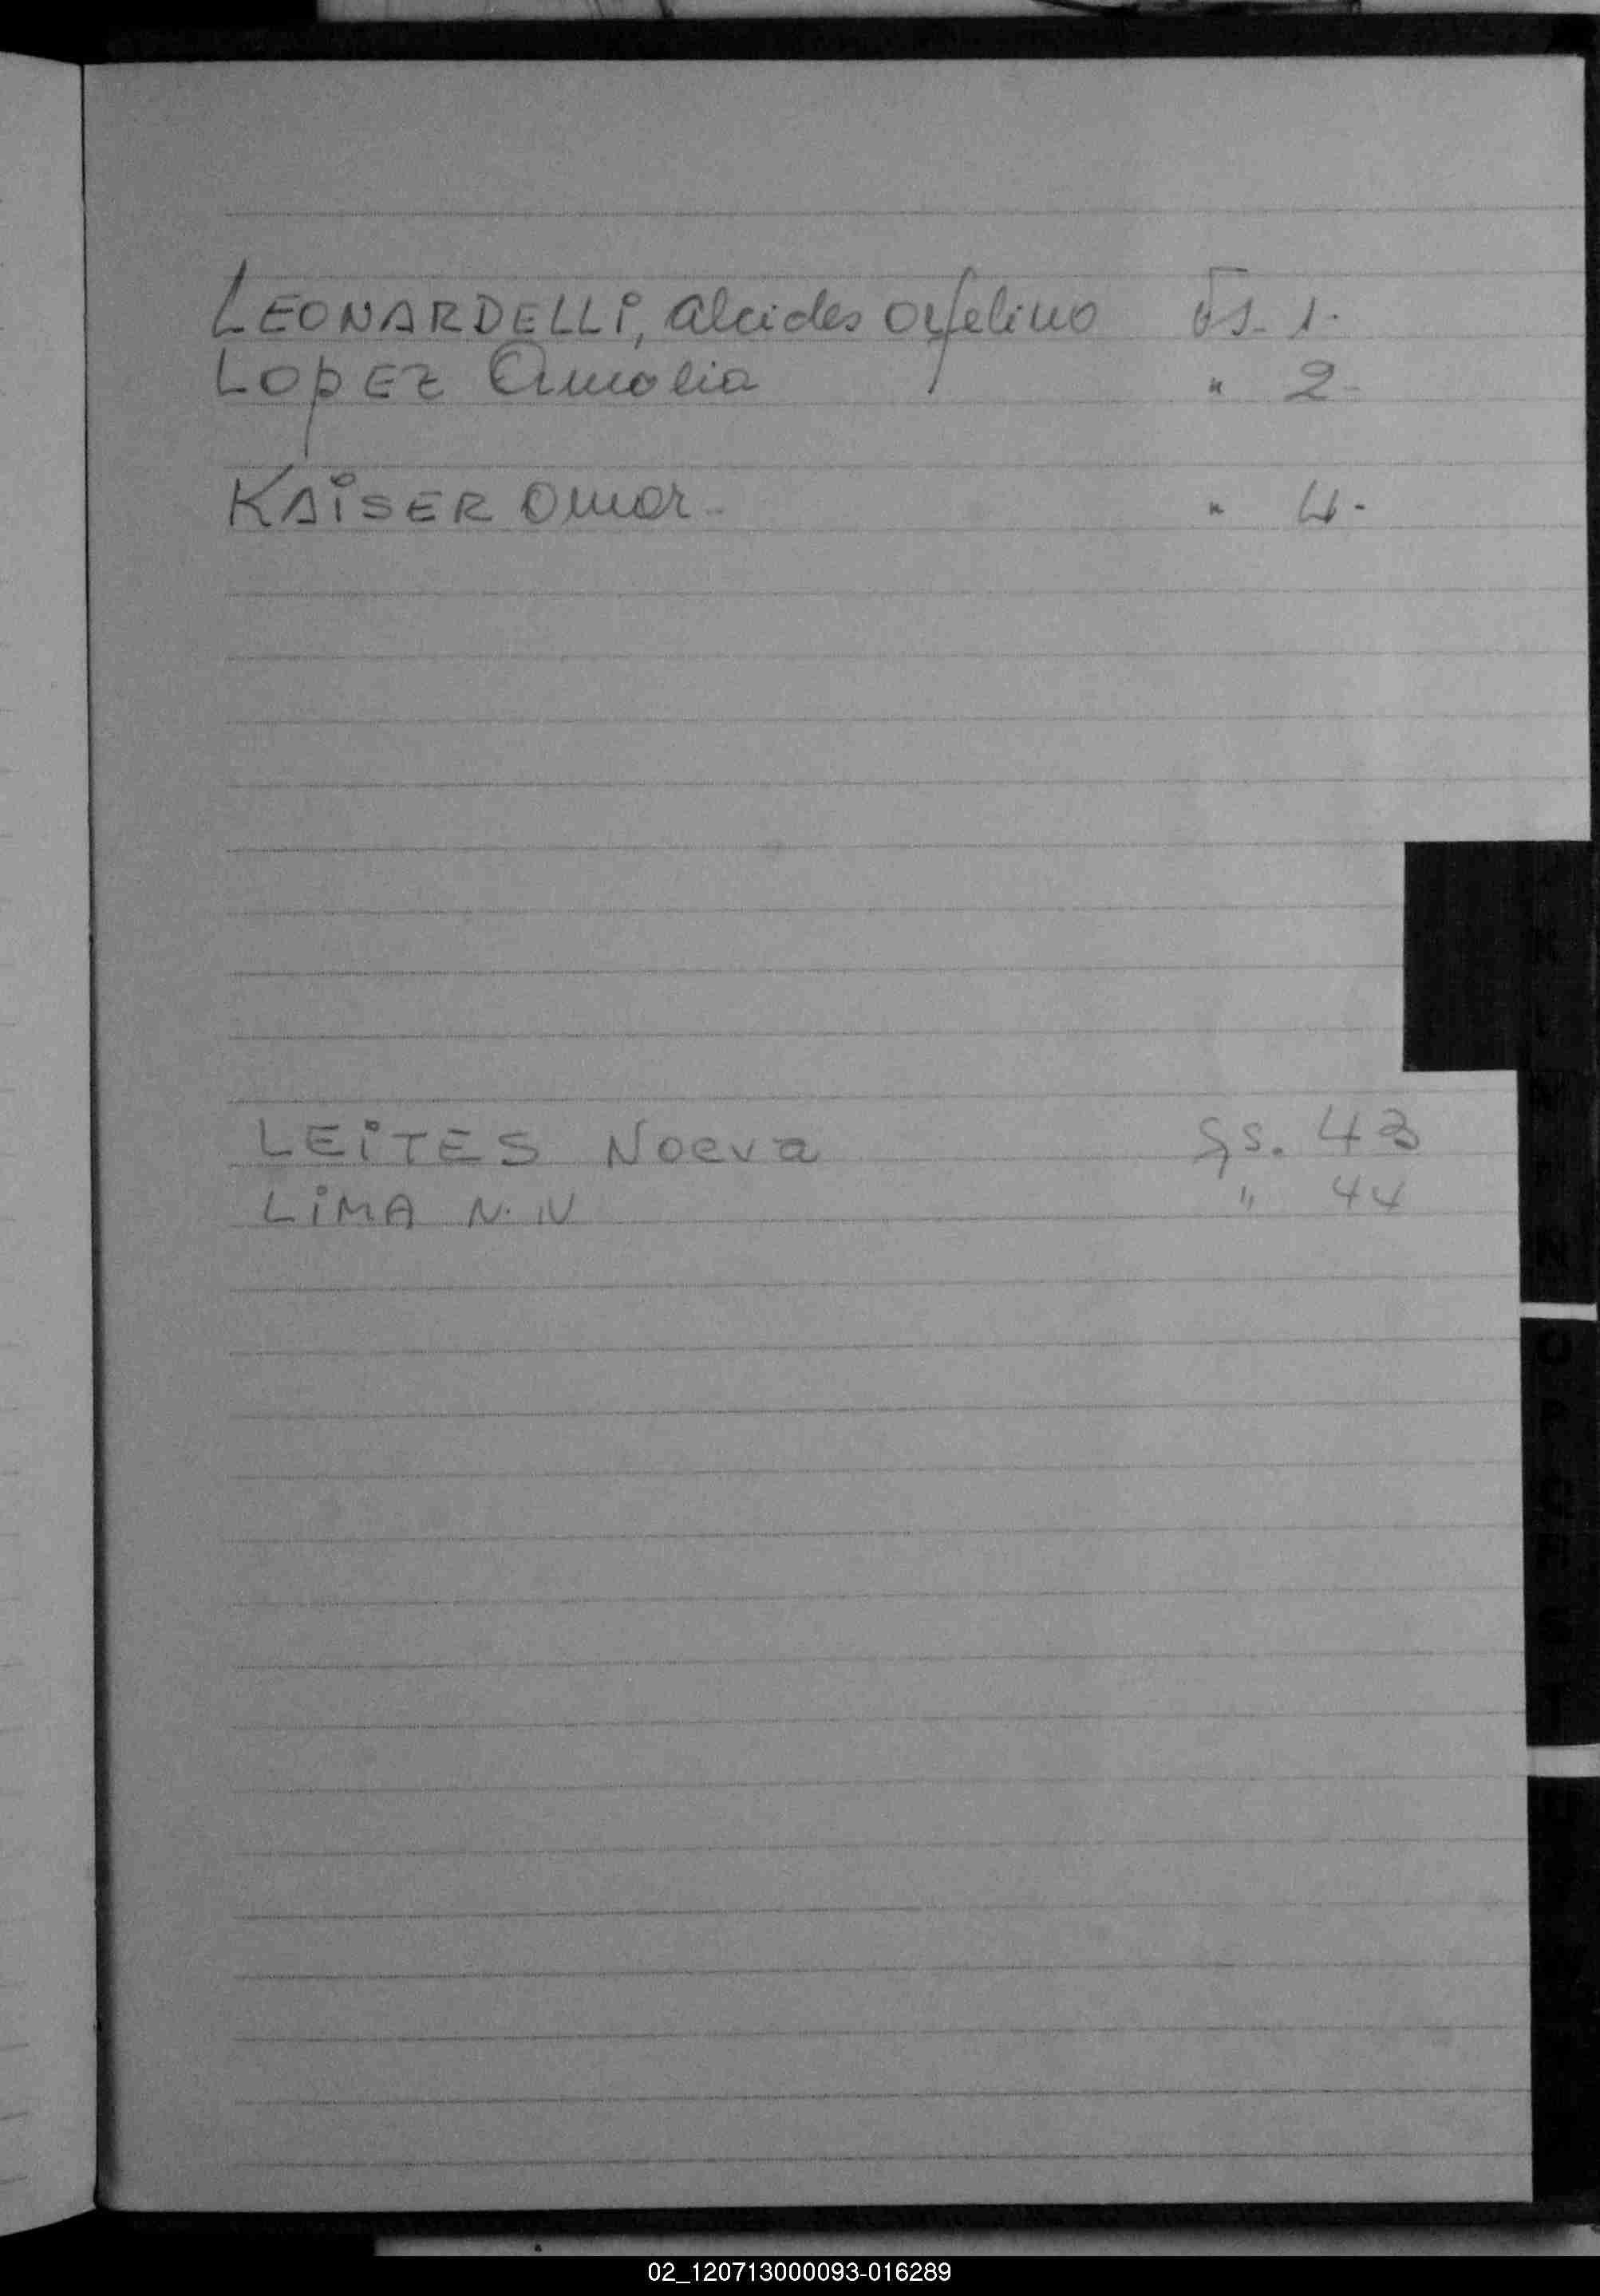 LEONARDELLI, Alcides Orfelino Fs. 1.
LOPEZ Amalia " 2-
KAiSER Omar - " 4.-
LEiTES Noeva Fs. 43
LiMA N. N " 44
02_120713000093-016289